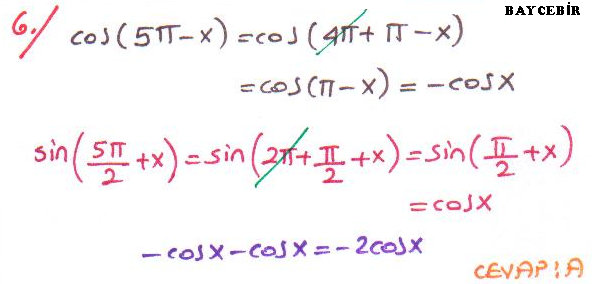 BAYCEBİR
6./ cos(5π-x)=cos(4π+π-x)
=cos(π-x)=-cosx
sin(5π/2+x)=sin(2π+π/2+x)=sin(π/2+x)
=cosx
-cosx-cosx=-2cosx
CEVAP:A